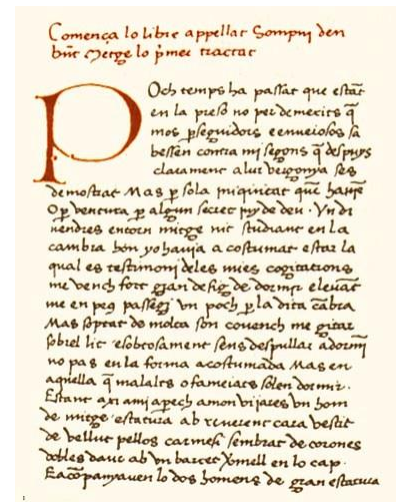 Comença lo libre appellat Sompni den
bñt Metge lo pͥmer tractat
Poch temps ha passat que estãt
en la preso no per demerits q̃
mos ꝑseguidors e enueiosos sa
bessen contra mi segons q̃ despuys
clarament a lur vergonya ses
demostrat Mas ꝑ sola iniquitat que hauiẽ
O ꝑ ventura ꝑ algun secret iuy de deu · Vn di
uendres entorn mitge nit studiant en la
cambra hon yo hauia acostumat estar la
qual es testimoni deles mies cogitacions
me vench fort gran desig de dormir e leuãt
me en peus passegi vn poch ꝑ la dita cãbra
Mas soptat de molta son couench me gitar
sobrel lit e sobtosament sens despullar adormi
no pas en la forma acostumada Mas en
aquella q̃ malalts o fameiats solen dormir ·
Estant axi ami aparech amon viiares vn hom
de mitge estatura ab reuerent cara vestit
de vellut pellos carmesi sembrat de corones
dobles daur ab vn barret vermell en lo cap ·
E acõpanyauen lo dos homens de gran estatura